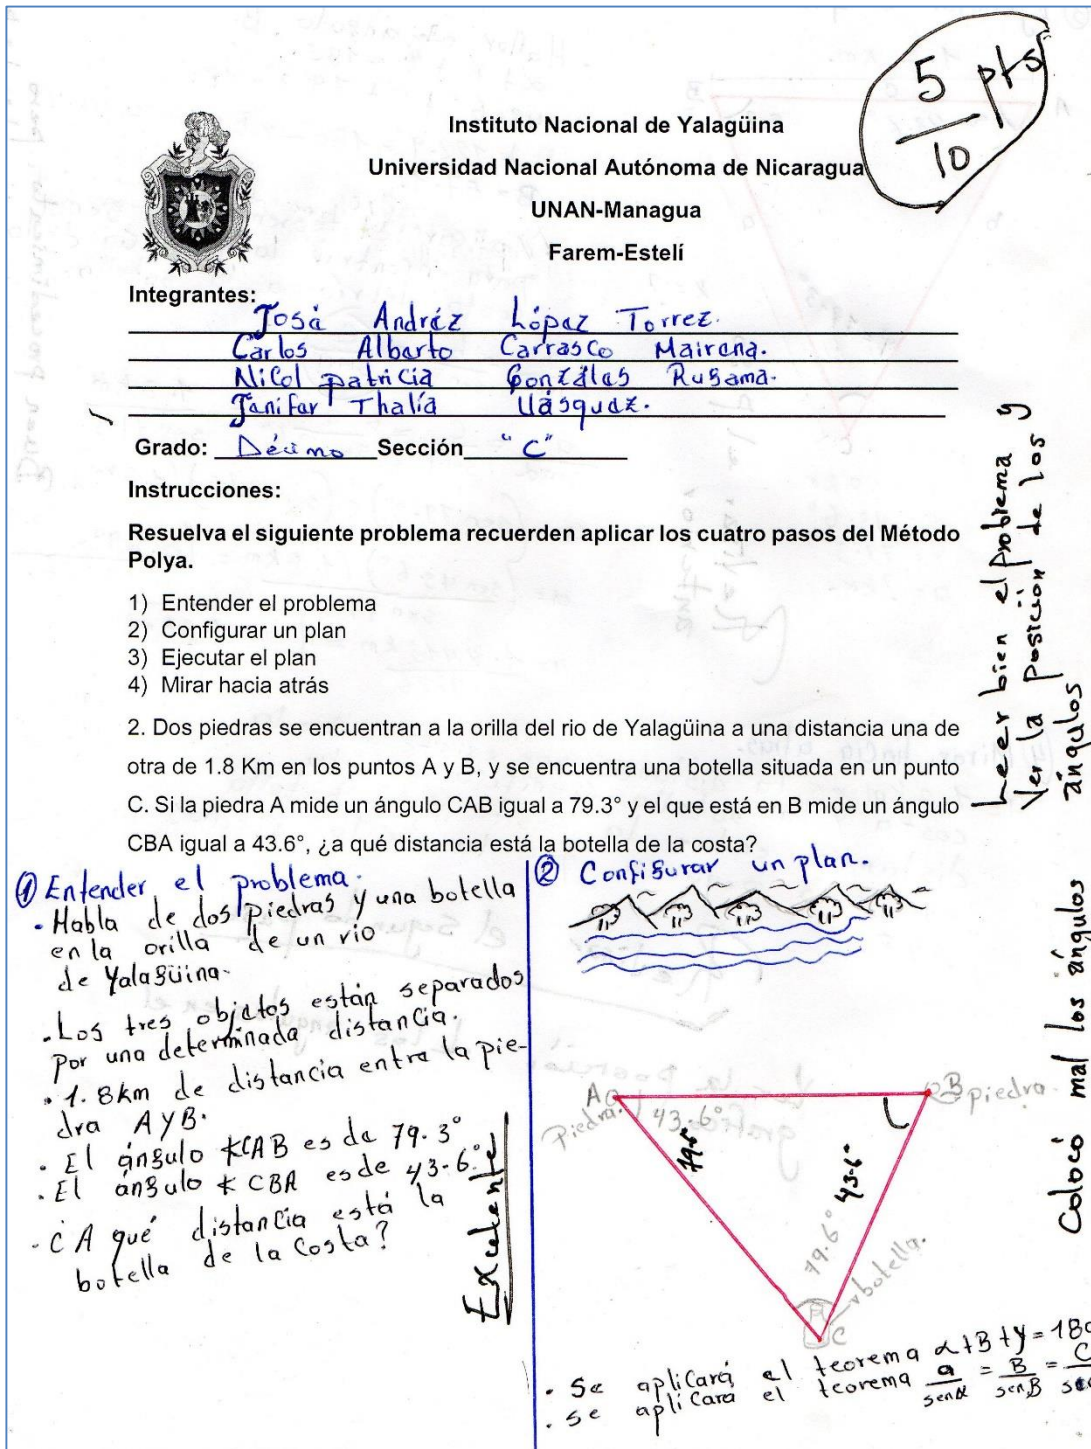 5 pts
10
Instituto Nacional de Yalagüina
Universidad Nacional Autónoma de Nicaragua
UNAN-Managua
Farem-Estelí
Integrantes:
José Andréz López Torrez.
Carlos Alberto Carrasco Mairena.
Nicol patricia Gonzáles Rugama.
Jenifer Thalía Vásquez.
Grado: Décimo Sección "C"
Instrucciones:
Resuelva el siguiente problema recuerden aplicar los cuatro pasos del Método
Polya.
1) Entender el problema
2) Configurar un plan
3) Ejecutar el plan
4) Mirar hacia atrás
2. Dos piedras se encuentran a la orilla del rio de Yalagüina a una distancia una de
otra de 1.8 Km en los puntos A y B, y se encuentra una botella situada en un punto
C. Si la piedra A mide un ángulo CAB igual a 79.3° y el que está en B mide un ángulo
CBA igual a 43.6°, ¿a qué distancia está la botella de la costa?
Leer bien el problema y
Ver la posición de los
ángulos
① Entender el problema.
• Habla de dos piedras y una botella
en la orilla de un rio
de Yalagüina.
• Los tres objetos están separados
por una determinada distancia.
• 1.8km de distancia entre la pie-
dra A y B.
• El ángulo ∢CAB es de 79.3°
• El ángulo ∢ CBA es de 43.6°.
• ¿A qué distancia está la
botella de la Costa?
Excelente
② Configurar un plan.
A
piedra.
43.6°
B piedra.
43.6°
79.6°
botella.
C
Colocó mal los ángulos
• Se aplicará el teorema α+B+γ=180
• se aplicara el teorema a/senα = B/senB = C